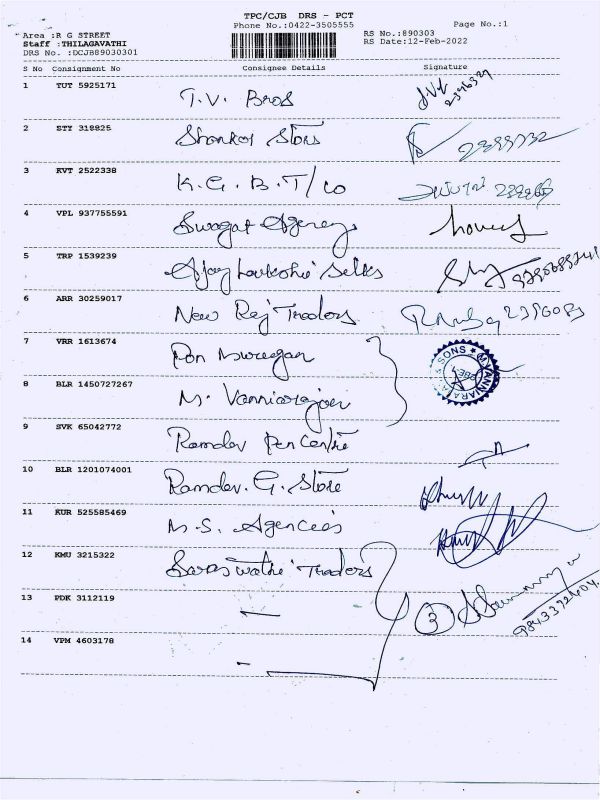 TPC/CJB DRS - PCT
Phone No.:0422-3505555 Page No.:1
Area :R G STREET RS No.:890303
Staff :THILAGAVATHI RS Date:12-Feb-2022
DRS No. :DCJB89030301
S No Consignment No Consignee Details Signature
1 TUT 5925171 T.V. Bros
2 STY 318825
3 KVT 2522338 K.G.B.T/Co
4 VPL 937755591 Swagat Agency
5 TRP 1539239 Ajay Selks
6 ARR 30259017 New Raj Traders
7 VRR 1613674 Pon Murugan SONS
8 BLR 1450727267 M. Vanniarajan
9 SVK 65042772 Ramdev Pen Centre
10 BLR 1201074001 Ramdev. G. Store
11 KUR 525585469 M.S. Agencies
12 KMU 3215322 Saraswathi Traders
13 PDK 3112119 3
14 VPM 4603178